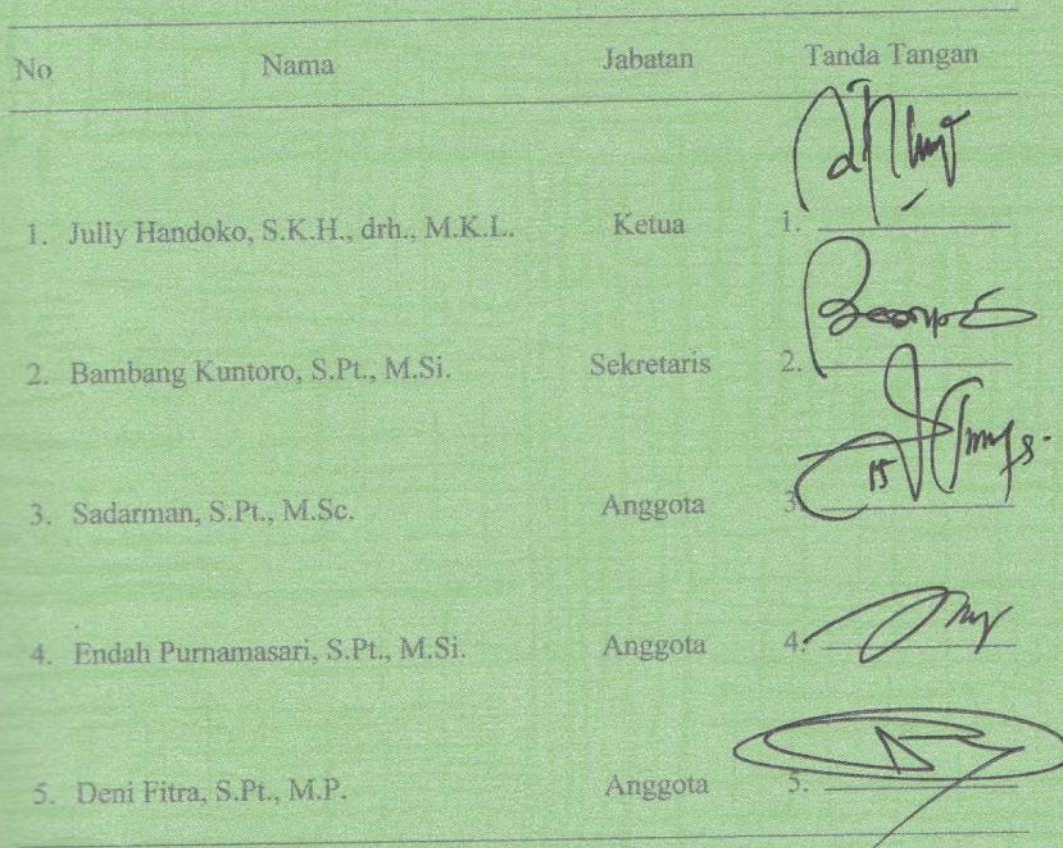 No Nama Jabatan Tanda Tangan
1. Jully Handoko, S.K.H., drh., M.K.L. Ketua 1.
2. Bambang Kuntoro, S.Pt., M.Si. Sekretaris 2.
3. Sadarman, S.Pt., M.Sc. Anggota 3.
4. Endah Purnamasari, S.Pt., M.Si. Anggota 4.
5. Deni Fitra, S.Pt., M.P. Anggota 5.